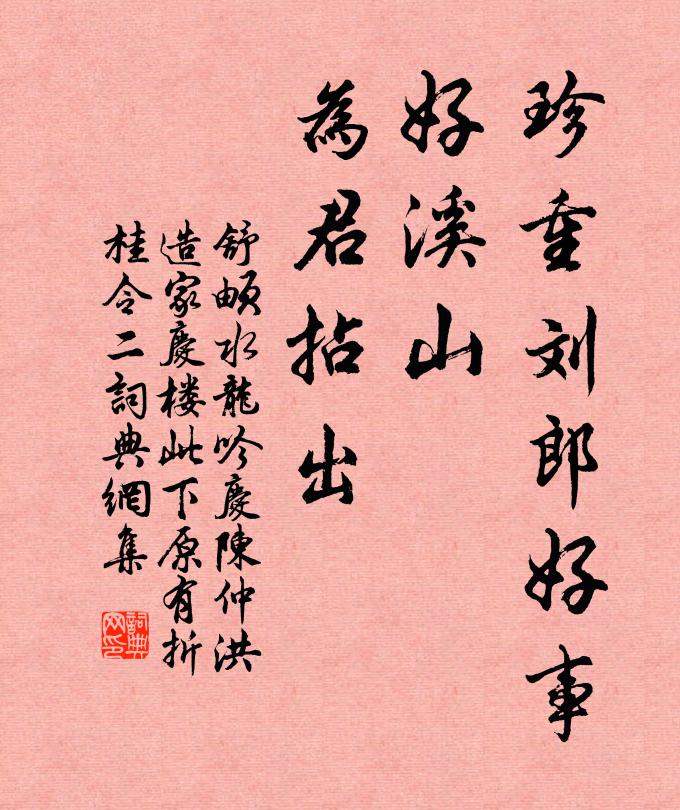 珍重刘郎好事
好溪山
為君拈出
舒頔水龍吟慶陳仲洪
造家慶楼此下原有折
桂令二詞典網集
詞典
网印